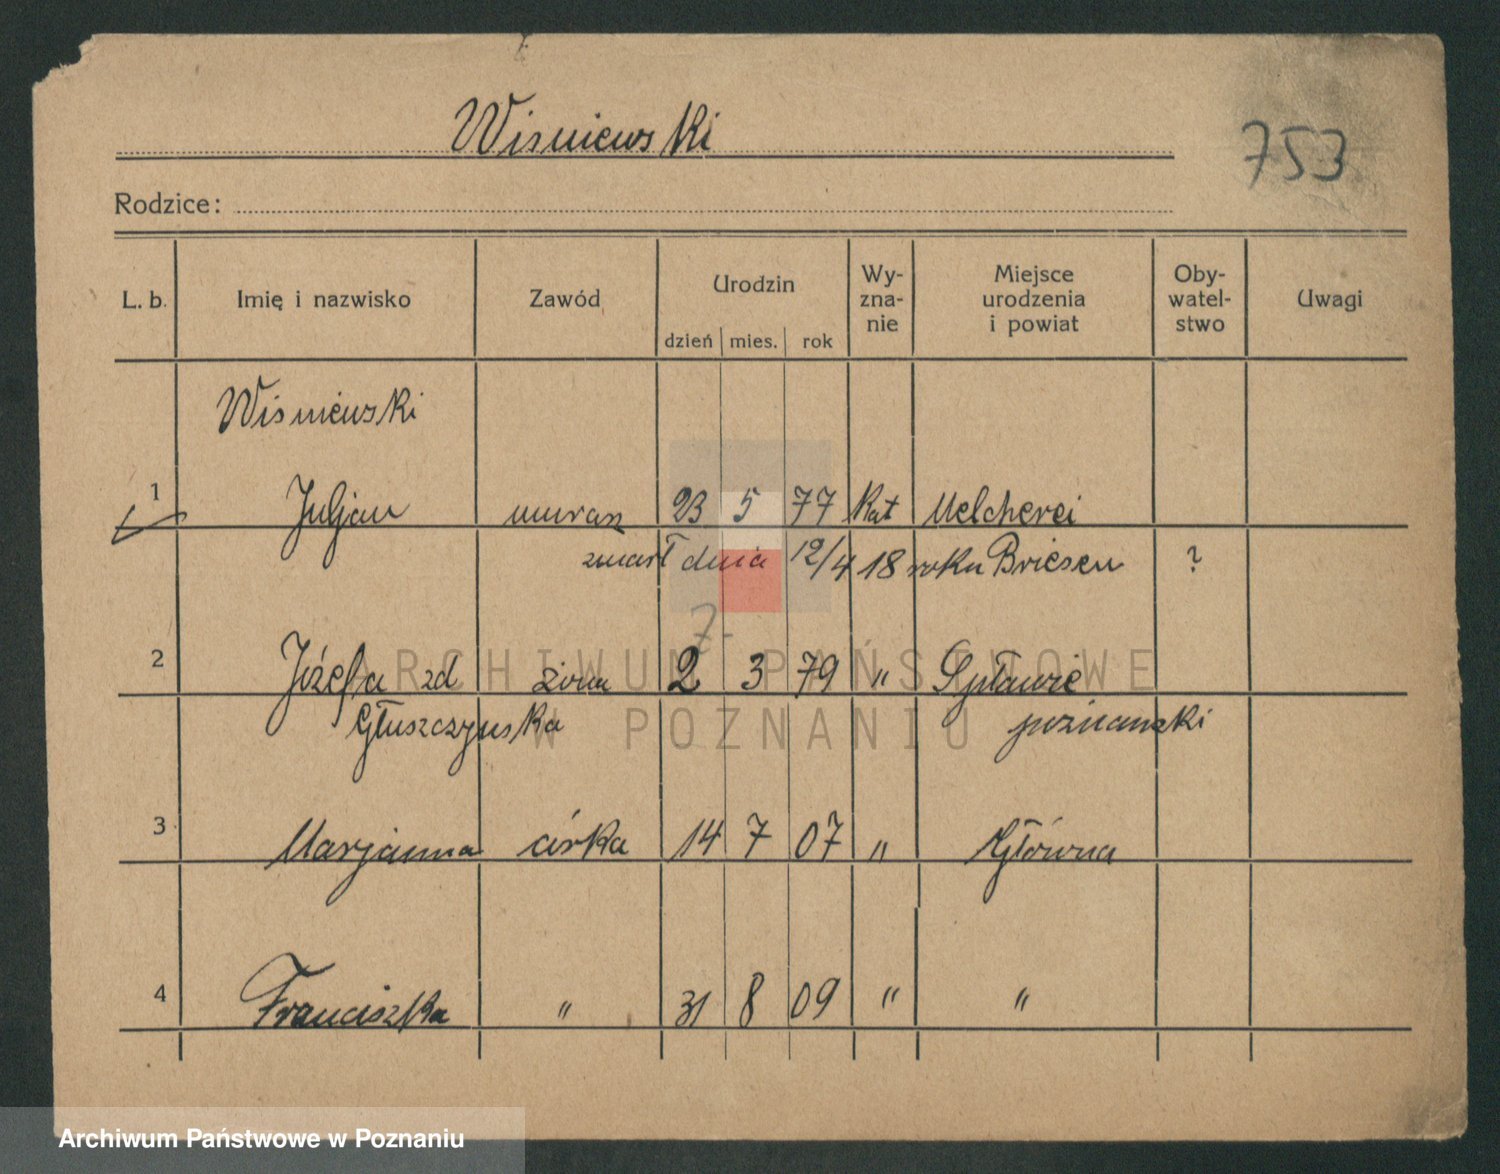 Wiśniewski
753
Rodzice:
L. b.
Imię i nazwisko
Zawód
Urodzin
dzień
mies.
rok
Wy-
zna-
nie
Miejsce
urodzenia
i powiat
Oby-
watel-
stwo
Uwagi
Wiśniewski
1 Juljan murarz 23 5 77 Kat Melcherei
zmarł dnia 12/4 18 roku Briesen ?
7-
2 Józefa zd żona 2 3 79 " Spławie
Głuszczyńska poznański
3 Marjanna córka 14 7 07 " Główna
4 Franciszka " 31 8 09 " "
ARCHIWUM PAŃSTWOWE
W POZNANIU
Archiwum Państwowe w Poznaniu